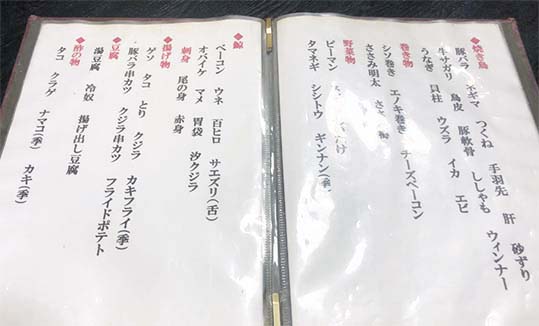 ◆焼き鳥
ネギマ つくね 手羽先 肝 砂ずり
豚バラ 鳥皮 豚軟骨 ししゃも ウィンナー
牛サガリ 貝柱 ウズラ イカ エビ
うなぎ
◆巻き物
シソ巻き エノキ巻き チーズベーコン
ささみ明太 ささ
◆野菜物
ピーマン
タマネギ シシトウ ギンナン(季)
◆鯨
ベーコン ウネ 百ヒロ サエズリ(舌)
オバイケ マメ 胃袋 汐クジラ
◆刺身 尾の身 赤身
◆揚げ物
ゲソ タコ とり クジラ カキフライ(季)
豚バラ串カツ クジラ串カツ フライドポテト
◆豆腐
湯豆腐 冷奴 揚げ出し豆腐
◆酢の物
タコ クラゲ ナマコ(季) カキ(季)